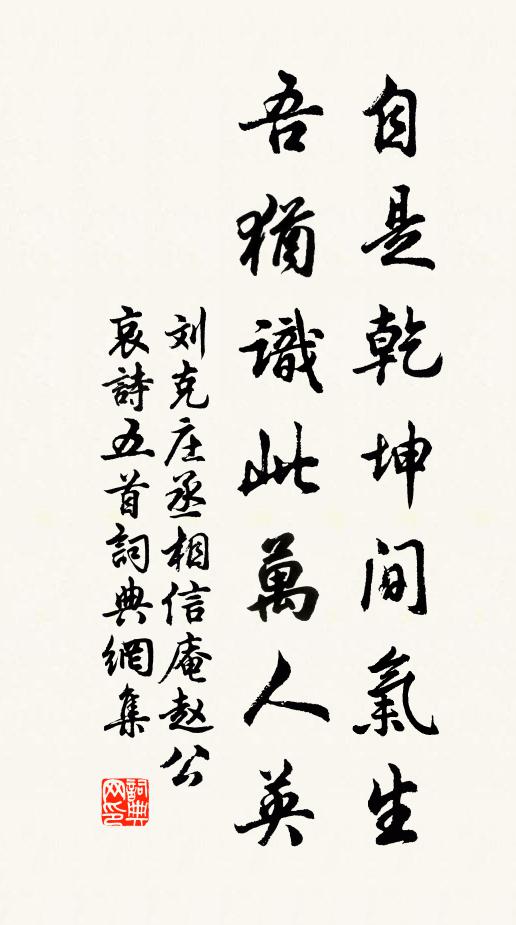 自是乾坤间氣生
吾猶識此萬人英
刘克庄丞相信庵赵公
哀詩五首詞典網集
詞典
网印